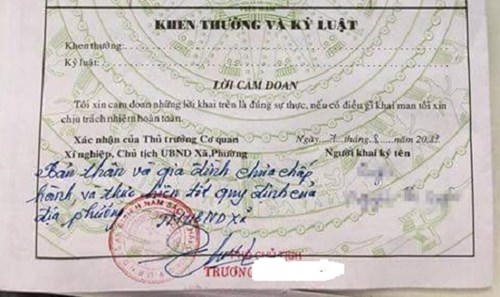 KHEN THƯỞNG VÀ KỶ LUẬT
Khen thưởng:
Kỷ luật:
LỜI CAM ĐOAN
Tôi xin cam đoan những lời khai trên là đúng sự thực, nếu có điều gì khai man tôi xin
chịu trách nhiệm hoàn toàn.
Xác nhận của Thủ trưởng Cơ quan
Xí nghiệp, Chủ tịch UBND Xã, Phường
Ngày 7 tháng 8 năm
Người khai ký tên
Bản thân và gia đình chưa chấp
hành và thực hiện tốt quy định của
địa phương.
TM UBND Xã
CHỦ TỊCH
TRƯƠNG